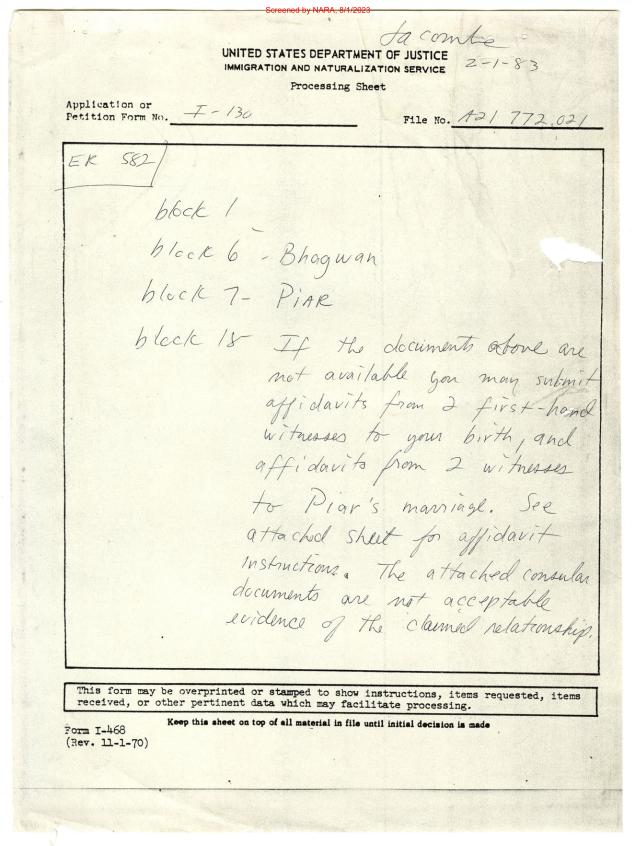 Screened by NARA, 8/1/2023
Lacombe
UNITED STATES DEPARTMENT OF JUSTICE
2-1-83
IMMIGRATION AND NATURALIZATION SERVICE
Processing Sheet
Application or
Petition Form No. I-130
File No. A21 772,021
ER 582
block 1
block 6 - Bhagwan
block 7 - PIAR
block 18 If the documents above are
not available you may submit
affidavits from 2 first-hand
witnesses to your birth, and
affidavits from 2 witnesses
to Piar's marriage. See
attached sheet for affidavit
instructions. The attached consular
documents are not acceptable
evidence of the claimed relationship.
This form may be overprinted or stamped to show instructions, items requested, items
received, or other pertinent data which may facilitate processing.
Keep this sheet on top of all material in file until initial decision is made
Form I-468
(Rev. 11-1-70)